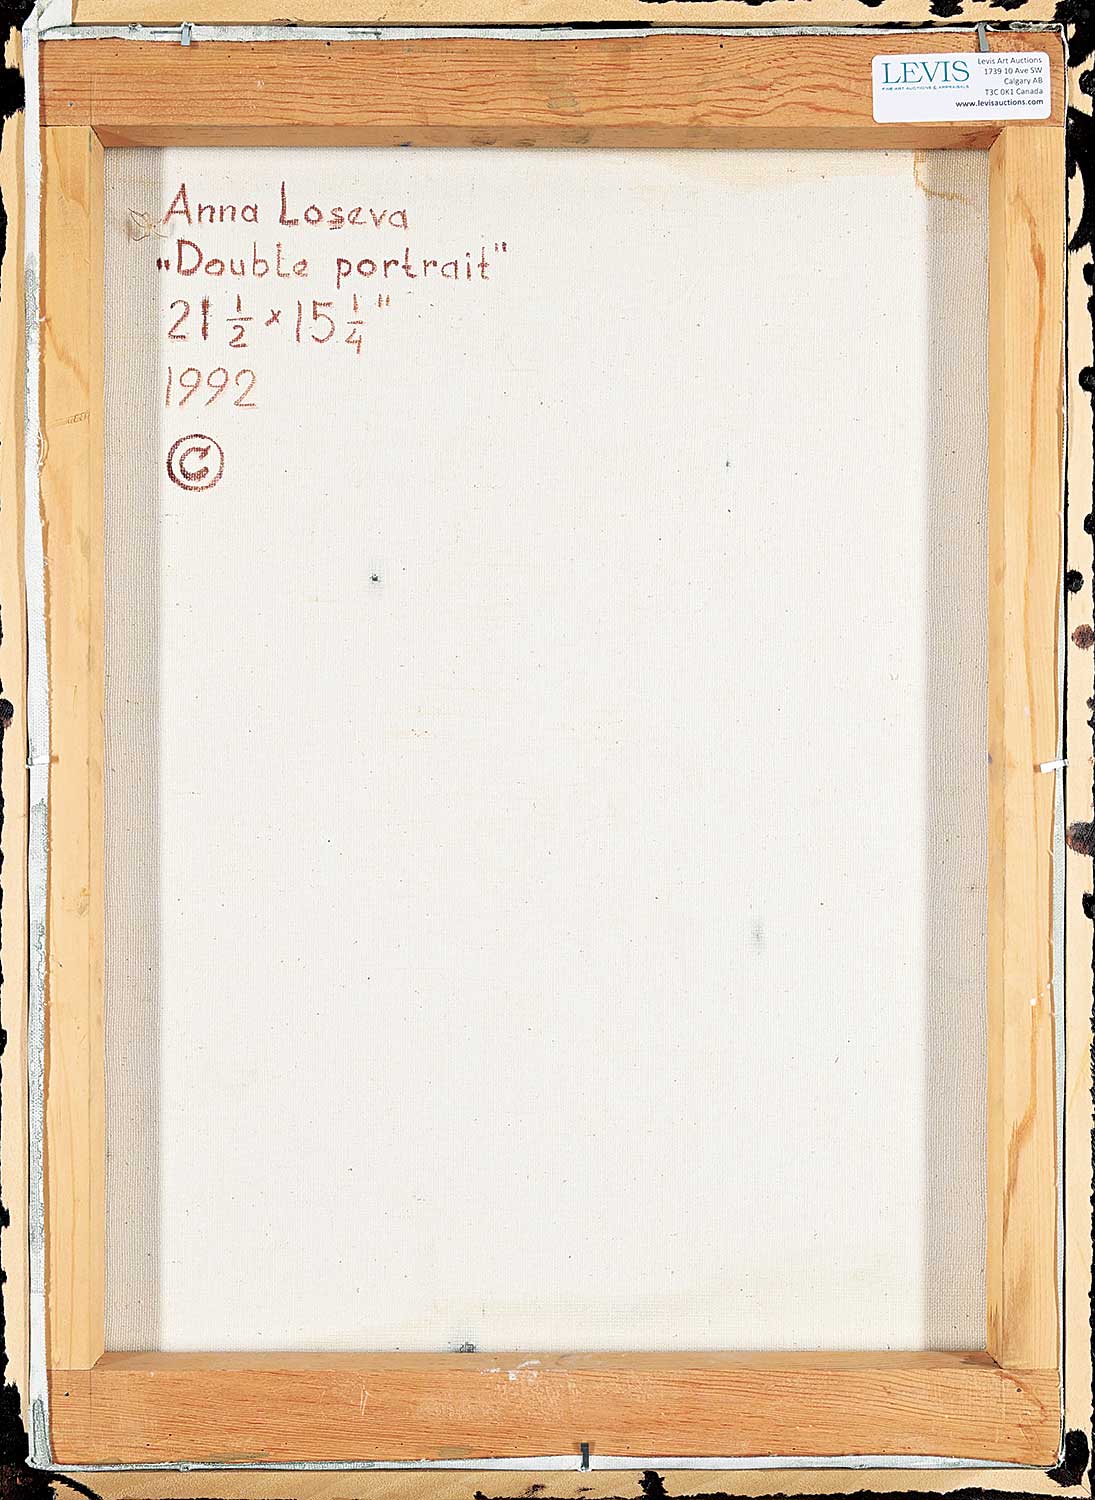 LEVIS
FINE ART AUCTIONS & APPRAISALS
Levis Art Auctions
1739 10 Ave SW
Calgary AB
T3C 0K1 Canada
www.levisauctions.com
Anna Loseva
„Double portrait"
21 1/2 × 15 1/4"
1992
©